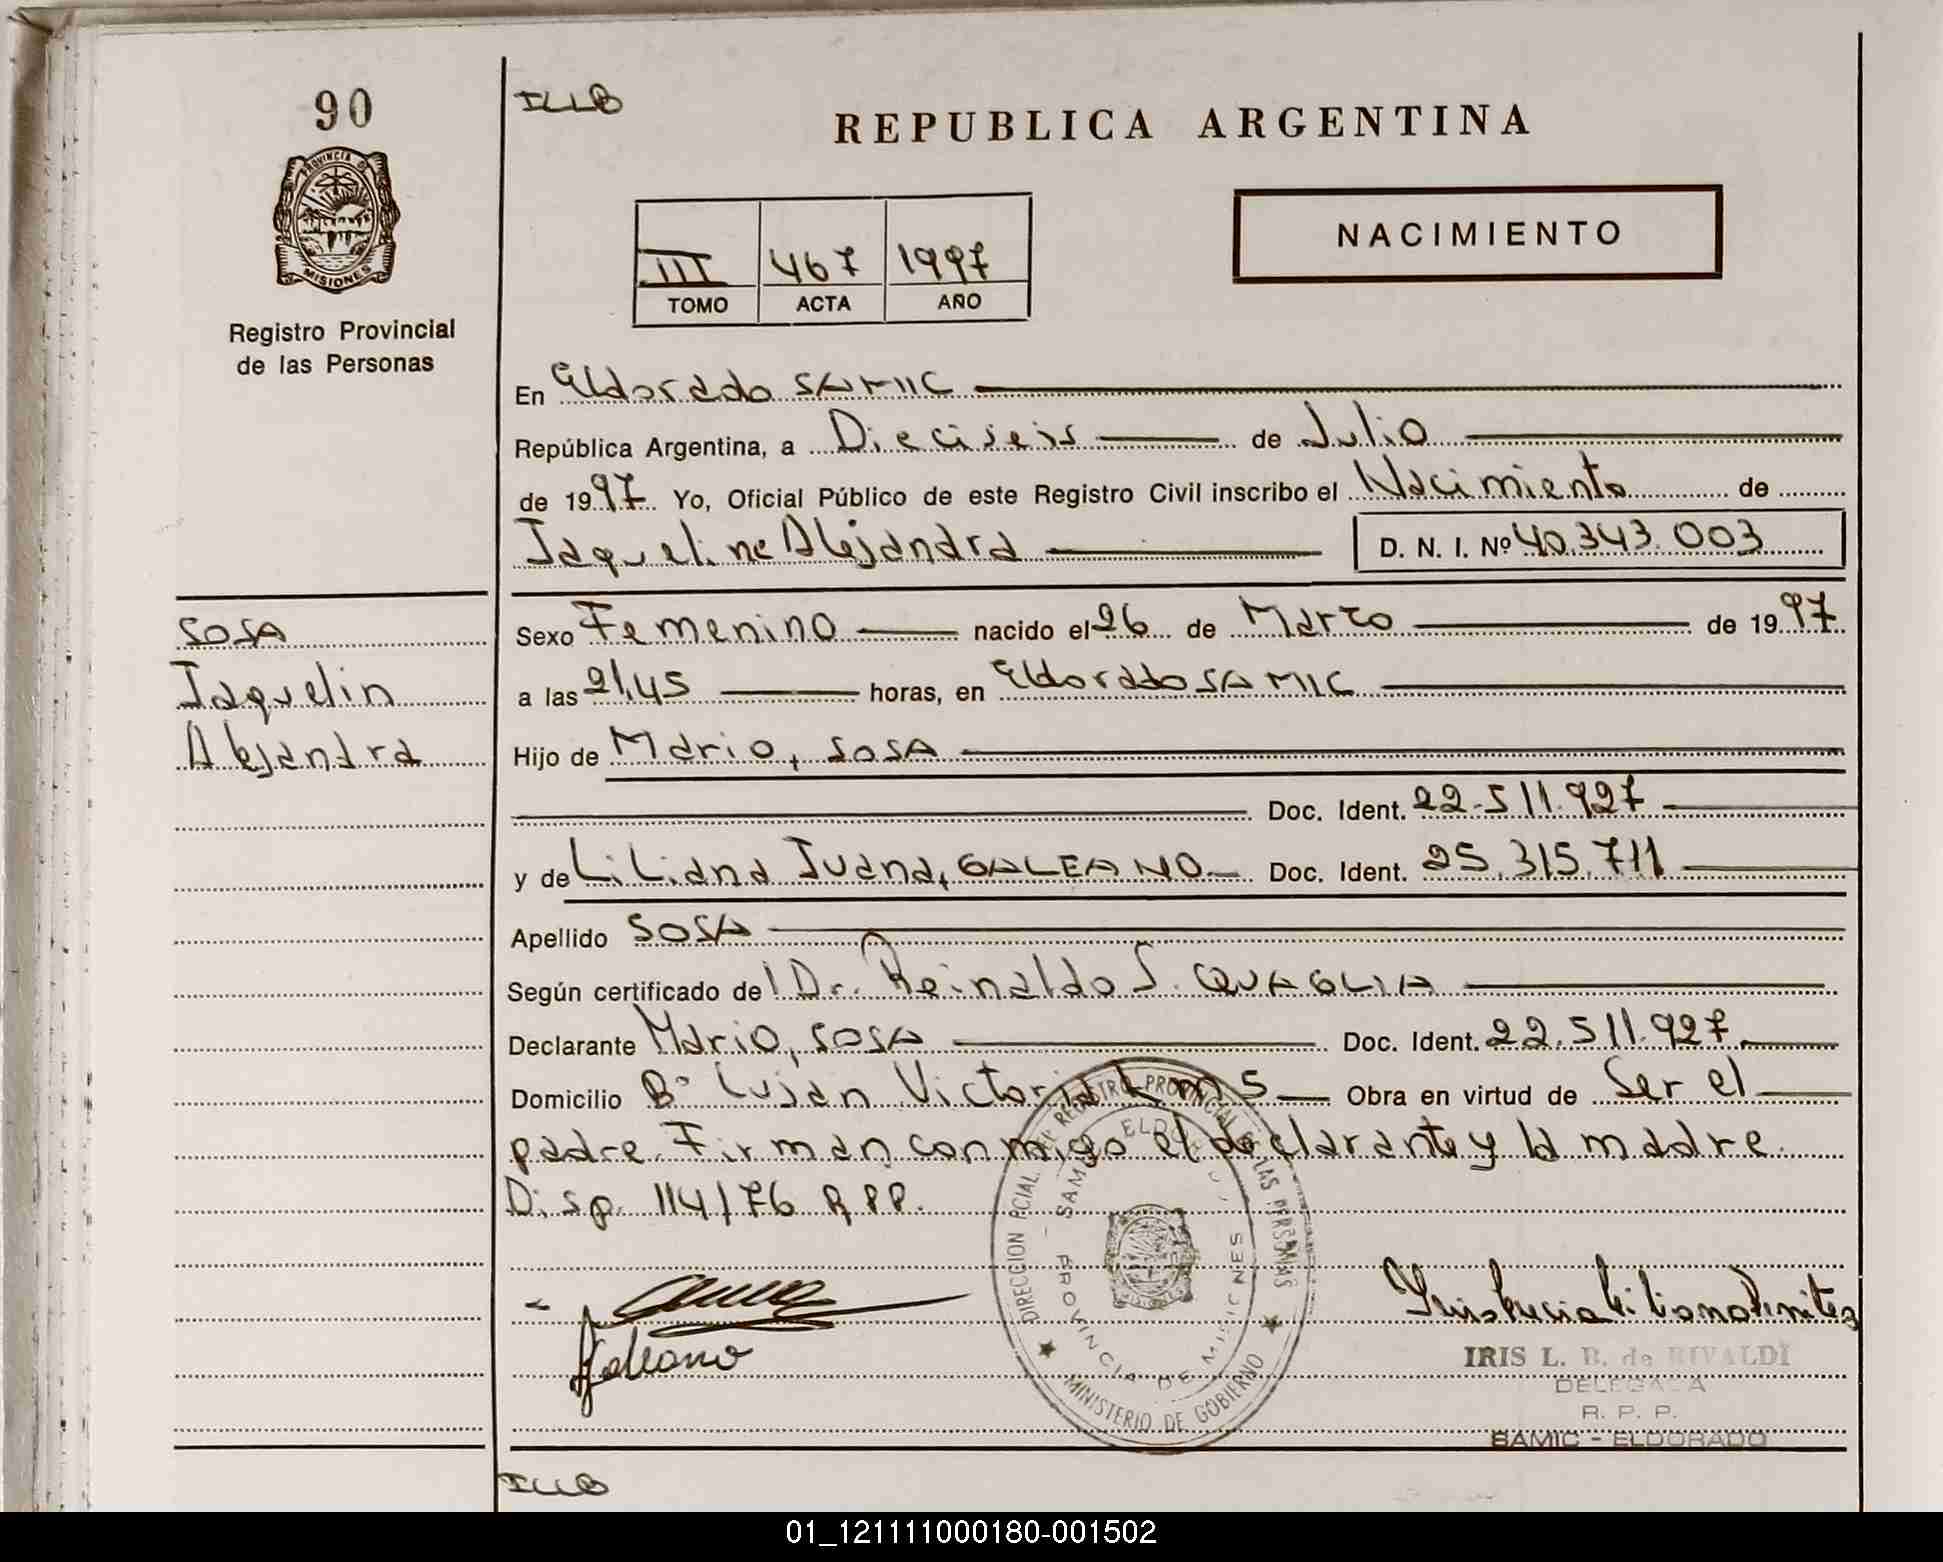 90
ILLB
REPUBLICA ARGENTINA
PROVINCIA DE
MISIONES
Registro Provincial
de las Personas
III 467 1997
TOMO ACTA AÑO
NACIMIENTO
En Eldorado SAMIC
República Argentina, a Dieciseis de Julio
de 1997 Yo, Oficial Público de este Registro Civil inscribo el Nacimiento de
Jaqueline Alejandra D. N. I. Nº 40.343.003
SOSA
Jaquelin
Alejandra
Sexo Femenino nacido el 26 de Marzo de 1997
a las 21,45 horas, en Eldorado SAMIC
Hijo de Mario, SOSA
Doc. Ident. 22.511.927
y de Liliana Juana, GALEANO Doc. Ident. 25.315.711
Apellido SOSA
Según certificado del Dr. Reinaldo S. QUAGLIA
Declarante Mario, SOSA Doc. Ident. 22.511.927
Domicilio Bº Lujan Victoria km 5 Obra en virtud de Ser el
padre. Firman conmigo el declarante y la madre.
Disp. 114/76 RPP.
DIRECCION PCIAL. DEL REGISTRO PROVINCIAL DE LAS PERSONAS
MINISTERIO DE GOBIERNO
SAMIC ELDORADO
PROVINCIA DE MISIONES
Galeano
IRIS L. B. de RIVALDI
DELEGADA
R. P. P.
SAMIC - ELDORADO
ILLB
01_121111000180-001502